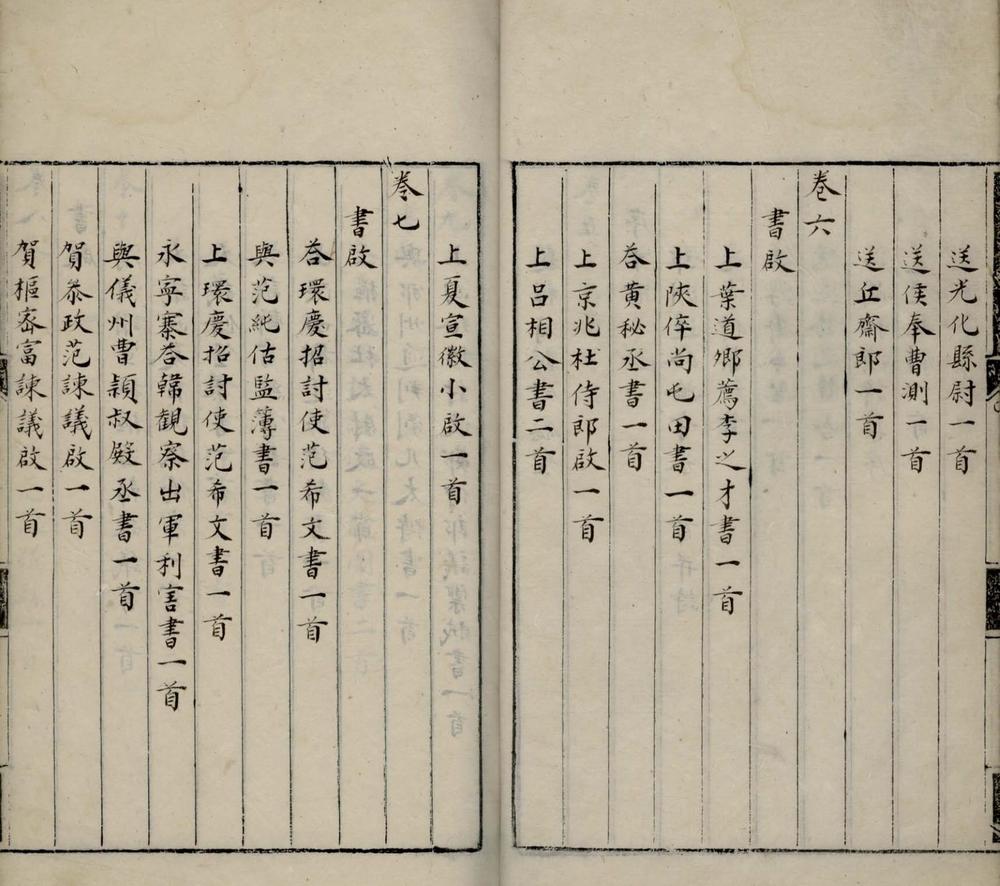 送光化縣尉一首
送侯奉曹測一首
送丘齋郎一首
卷六
書啟
上葉道鄉薦李之才書一首
上陝倅尚屯田書一首
荅黃秘丞書一首
上京兆杜侍郎啟一首
上呂相公書二首
上夏宣徽小啟一首
卷七
書啟
荅環慶招討使范希文書一首
與范純佑監簿書一首
上環慶招討使范希文書一首
永寧寨荅韓觀察出軍利害書一首
與儀州曹穎叔殿丞書一首
賀叅政范諫議啟一首
賀樞宻富諫議啟一首